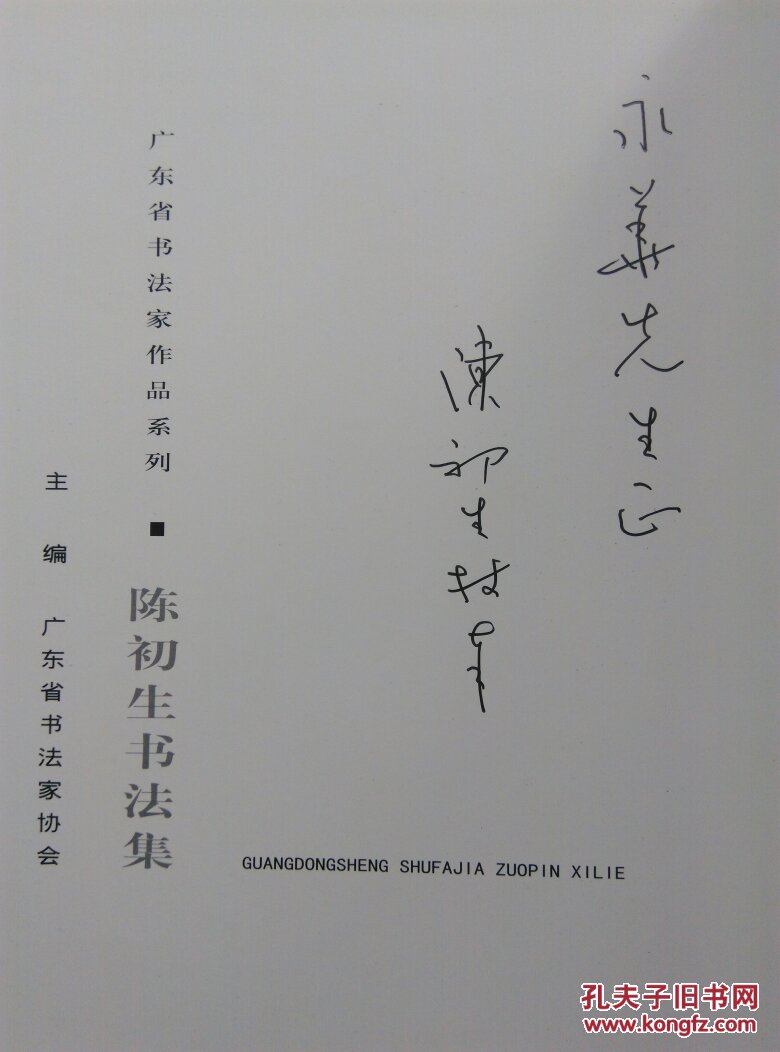 永 先生正
陳初生
广东省书法家作品系列 ■ 陈初生书法集
主编 广东省书法家协会
GUANGDONGSHENG SHUFAJIA ZUOPIN XILIE
孔夫子旧书网
www.kongfz.com